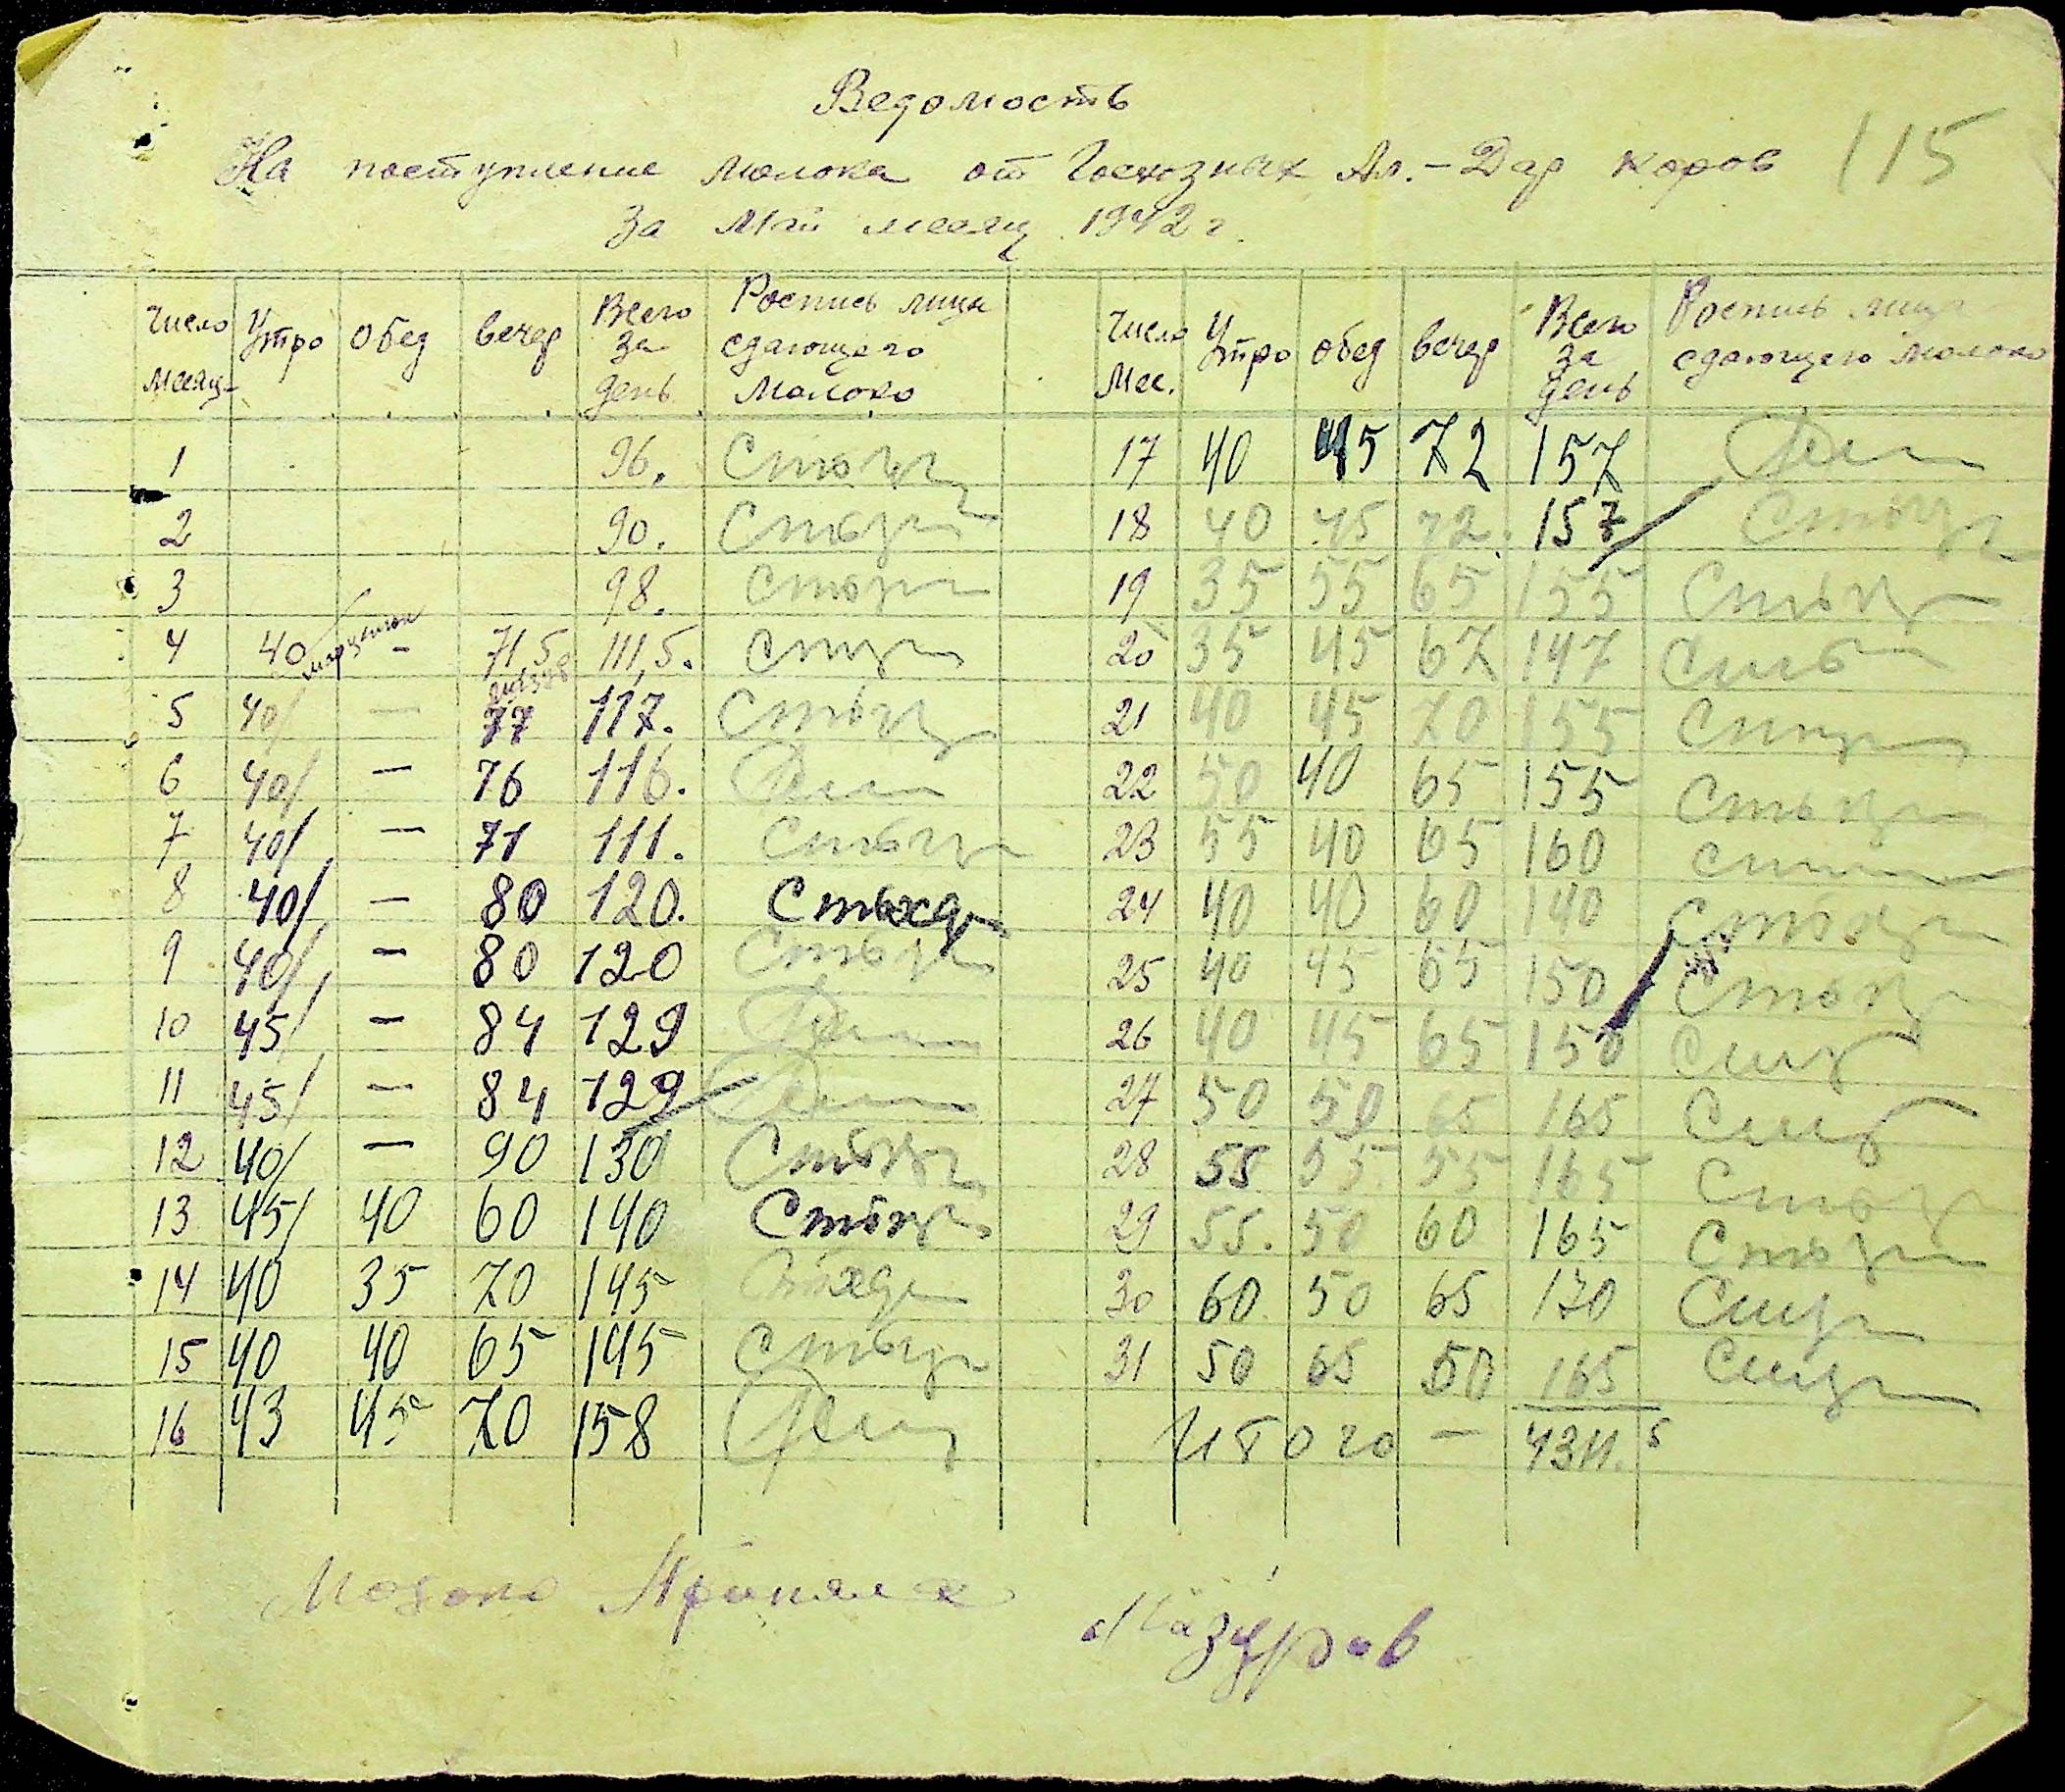 Ведомость
На поступление молока от Госхозных Ал.-Дар коров 115
За Май месяц 1942 г.
Число месяц- Утро Обед вечер Всего за день Роспись лица сдающего молоко
1 96.
2 90.
3 98.
4 40 - 71,5 111,5.
5 40/ — 77 117.
6 40/ — 76 116.
7 40/ — 71 111.
8 40/ — 80 120.
9 40/ — 80 120
10 45/ — 84 129
11 45/ — 84 129
12 40/ — 90 130
13 45/ 40 60 140
14 40 35 70 145
15 40 40 65 145
16 43 45 70 158
Число Мес. Утро обед вечер Всего за день Роспись лица сдающего молоко
17 40 45 72 157
18 40 45 72. 157
19 35 55 65 155
20 35 45 67 147
21 40 45 70 155
22 50 40 65 155
23 55 40 65 160
24 40 40 60 140
25 40 45 65 150
26 40 45 65 150
27 50 50 65 165
28 55 55. 55 165
29 55. 50 60 165
30 60 50 65 170
31 50 65 50 165
Итого — 4311.5
Молоко Принял
Мазуров